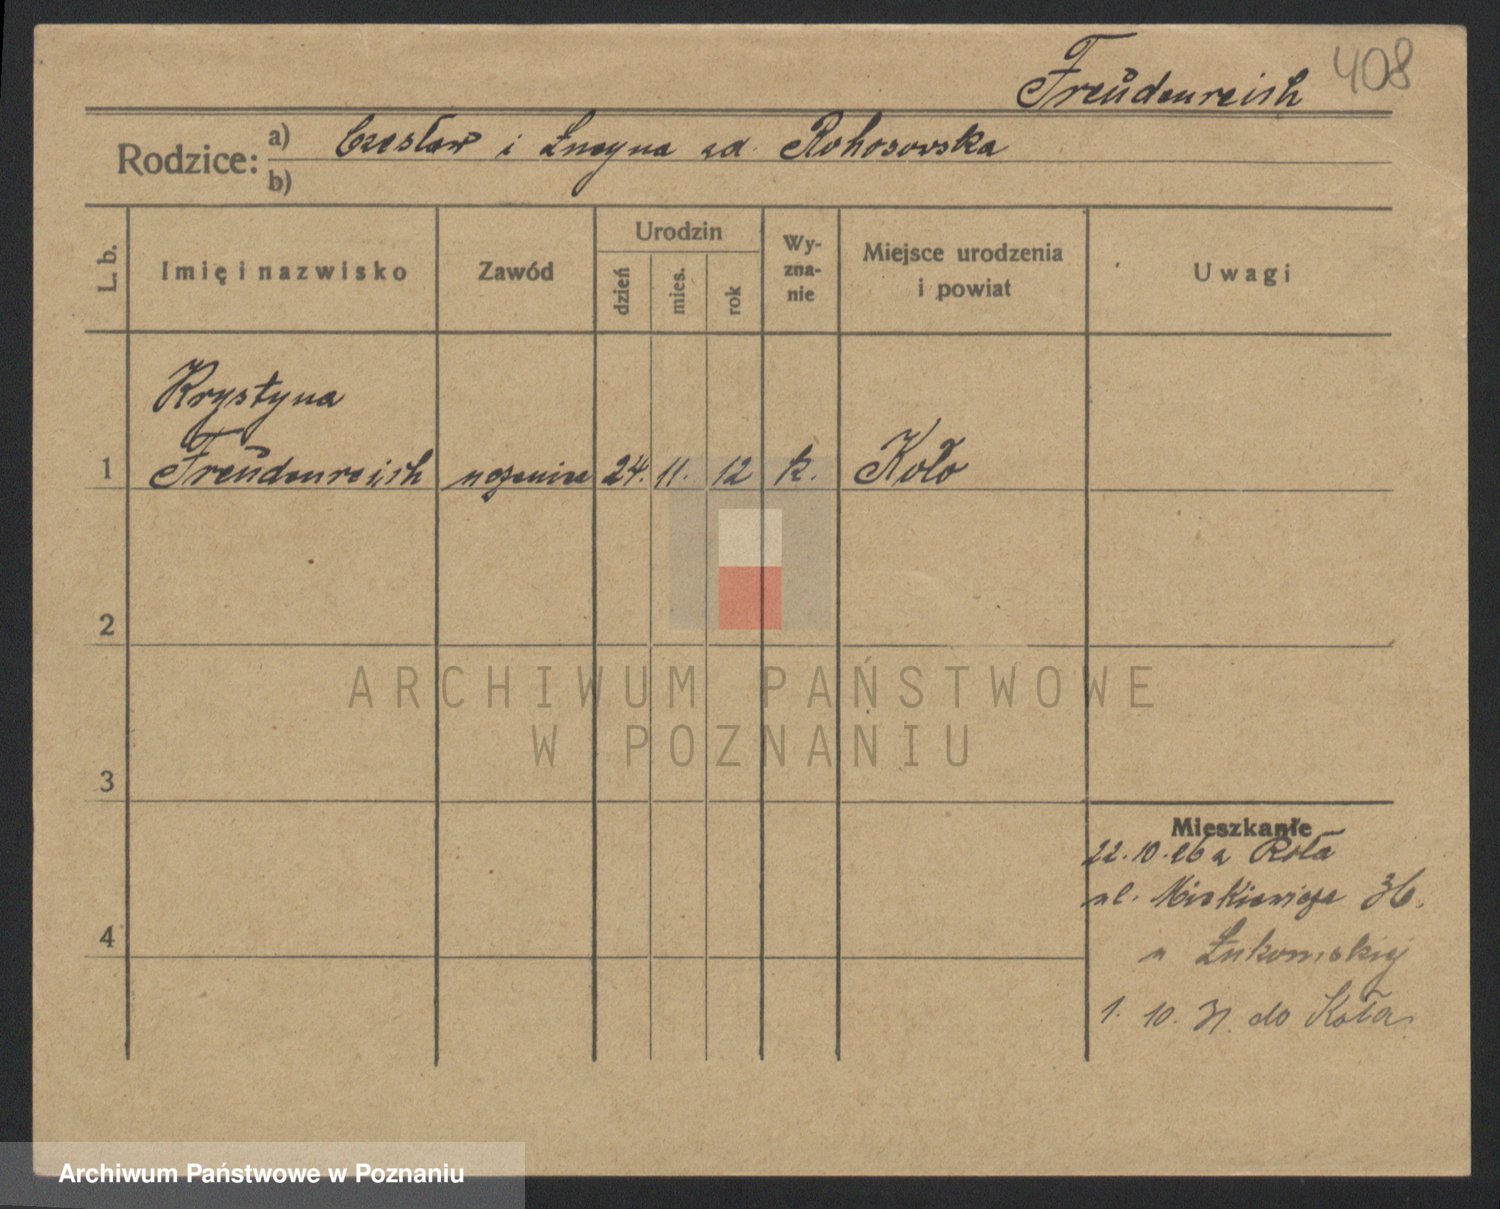 408
Freudenreich
Rodzice: a) Czesław i Łucyna zd. Rohosowska
b)
L. b.
Imię i nazwisko
Zawód
Urodzin
dzień
mies.
rok
Wy-
zna-
nie
Miejsce urodzenia
i powiat
Uwagi
Krystyna
1 Freudenreich uczenica 24. 11. 12 k. Koło
2
3
4
Mieszkanie
22.10.26 z Koła
ul. Mickiewicza 36.
u Łukomskiej
1. 10. 31. do Koła
ARCHIWUM PAŃSTWOWE
W POZNANIU
Archiwum Państwowe w Poznaniu